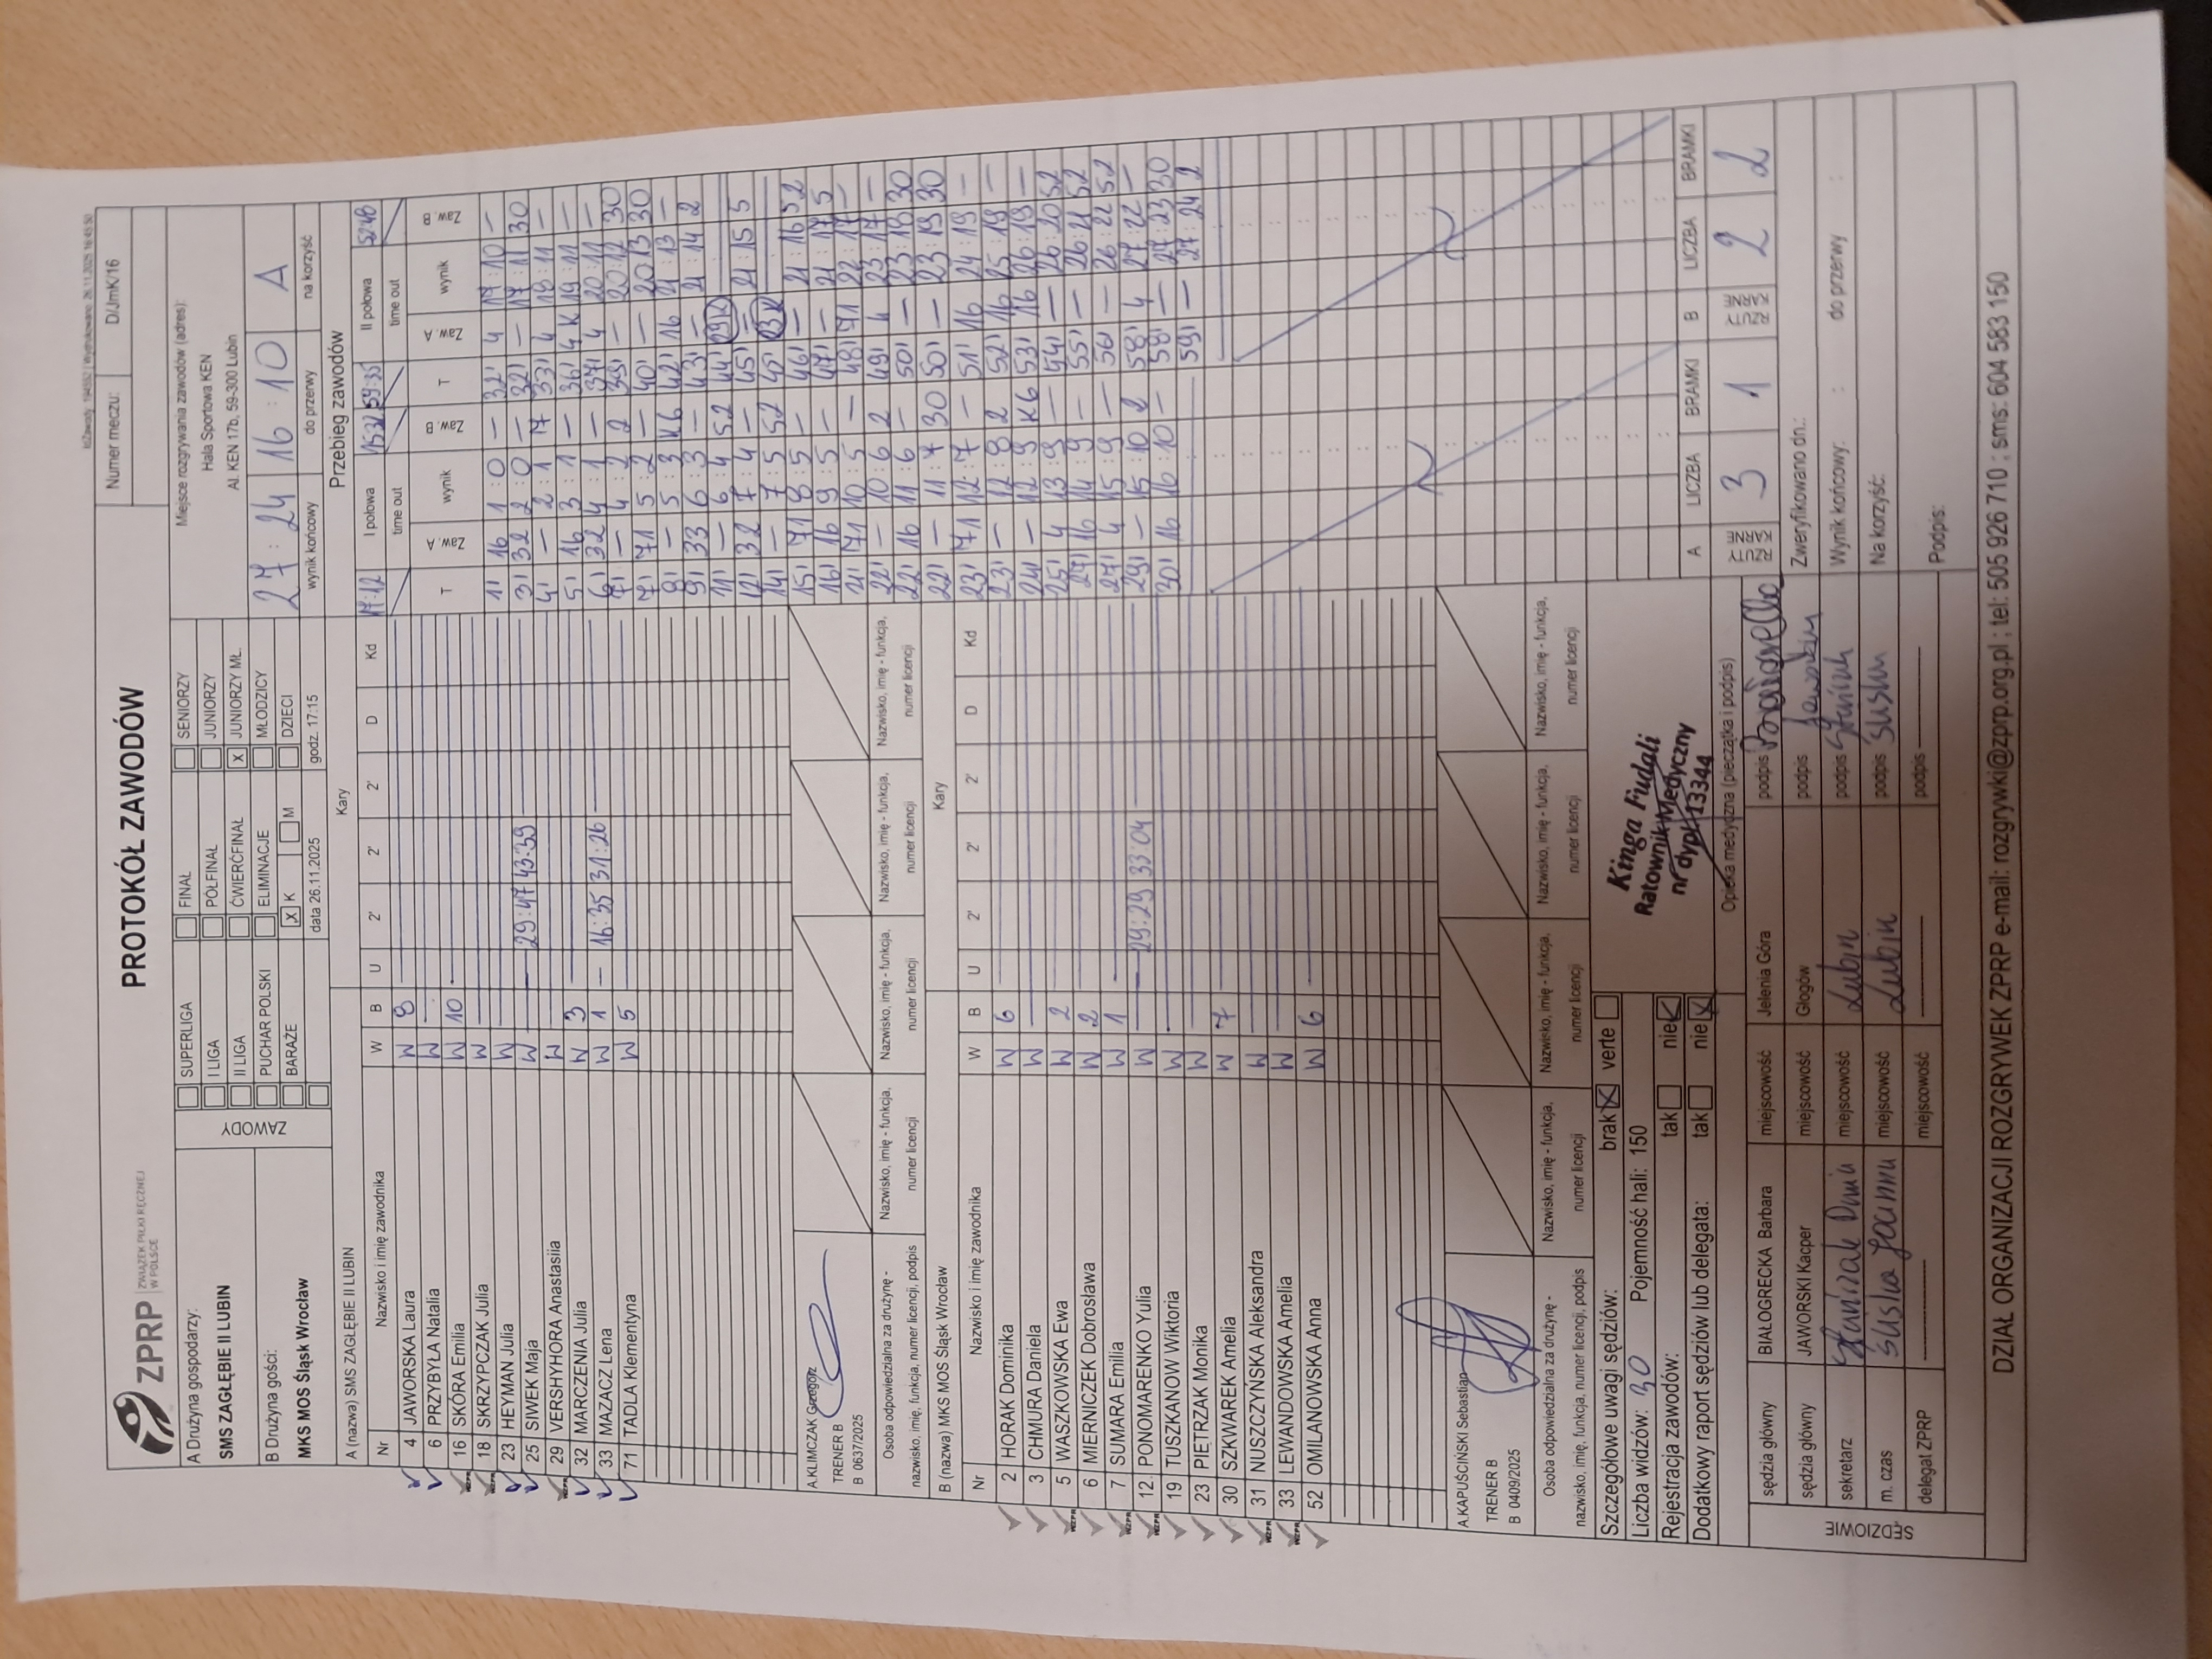 IdZawody: 194552 | Wydrukowano: 26.11.2025 16:45:50
ZPRP
ZWIĄZEK PIŁKI RĘCZNEJ
W POLSCE
PROTOKÓŁ ZAWODÓW
Numer meczu: D/JmK/16
A Drużyna gospodarzy:
SMS ZAGŁĘBIE II LUBIN
B Drużyna gości:
MKS MOS Śląsk Wrocław
ZAWODY
SUPERLIGA FINAŁ SENIORZY
I LIGA PÓŁFINAŁ JUNIORZY
II LIGA ĆWIERĆFINAŁ X JUNIORZY MŁ.
PUCHAR POLSKI ELIMINACJE MŁODZICY
BARAŻE X K M DZIECI
data 26.11.2025 godz. 17:15
Miejsce rozgrywania zawodów (adres):
Hala Sportowa KEN
Al. KEN 17b, 59-300 Lubin
27:24 16:10 A
wynik końcowy do przerwy na korzyść
A (nazwa) SMS ZAGŁĘBIE II LUBIN Kary
Nr Nazwisko i imię zawodnika W B U 2' 2' 2' D Kd
4 JAWORSKA Laura W
6 PRZYBYŁA Natalia W
16 SKÓRA Emilia W 10
18 SKRZYPCZAK Julia W
23 HEYMAN Julia W
25 SIWEK Maja W — 29:47 43:59
29 VERSHYHORA Anastasiia W
32 MARCZENIA Julia W 3
33 MAZACZ Lena W 1 — 16:35 31:26
71 TADLA Klementyna W 5
A.KLIMCZAK Grzegorz
TRENER B
B 0637/2025
Osoba odpowiedzialna za drużynę -
nazwisko, imię, funkcja, numer licencji, podpis
Nazwisko, imię - funkcja,
numer licencji
Nazwisko, imię - funkcja,
numer licencji
Nazwisko, imię - funkcja,
numer licencji
Nazwisko, imię - funkcja,
numer licencji
B (nazwa) MKS MOS Śląsk Wrocław Kary
Nr Nazwisko i imię zawodnika W B U 2' 2' 2' D Kd
2 HORAK Dominika W 6
3 CHMURA Daniela W
5 WASZKOWSKA Ewa W 2
6 MIERNICZEK Dobrosława W 2
7 SUMARA Emilia W 1
12 PONOMARENKO Yulia W — 29:29 33:04
19 TUSZKANOW Wiktoria W
23 PIETRZAK Monika W
30 SZKWAREK Amelia W 7
31 NUSZCZYŃSKA Aleksandra W
33 LEWANDOWSKA Amelia W
52 OMILANOWSKA Anna W 6
A.KAPUŚCIŃSKI Sebastian
TRENER B
B 0409/2025
Osoba odpowiedzialna za drużynę -
nazwisko, imię, funkcja, numer licencji, podpis
Nazwisko, imię - funkcja,
numer licencji
Nazwisko, imię - funkcja,
numer licencji
Nazwisko, imię - funkcja,
numer licencji
Nazwisko, imię - funkcja,
numer licencji
Przebieg zawodów
17:12 I połowa 15:32 59:35 II połowa 52:48
time out time out
T Zaw. A wynik Zaw. B T Zaw. A wynik Zaw. B
1' 16 1:0 — 32' 4 17:10 —
3' 32 2:0 — 32' — 17:11 30
4' — 2:1 17 33' 4 18:11 —
5' 16 3:1 — 36' 4K 19:11 —
6' 32 4:1 — 37' 4 20:11 —
7' — 4:2 2 39' — 20:12 30
7' 71 5:2 — 40' — 20:13 30
9' — 5:3 K6 42' 16 21:13 —
9' 33 6:3 — 43' — 21:14 2
11' — 6:4 52 44'
12' 32 7:4 — 45' — 21:15 5
14' — 7:5 52 45'
15' 71 8:5 — 46' — 21:16 52
16' 16 9:5 — 47' — 21:17 5
21' 71 10:5 — 48' 71 22:17 —
22' — 10:6 2 49' 4 23:17 —
22' 16 11:6 — 50' — 23:18 30
22' — 11:7 30 50' — 23:19 30
23' 71 12:7 — 51' 16 24:19 —
23' — 12:8 2 52' 16 25:19 —
24' — 12:9 K6 53' 16 26:19 —
25' 4 13:9 — 54' — 26:20 52
27' 16 14:9 — 55' — 26:21 52
27' 4 15:9 — 56' — 26:22 52
29' — 15:10 2 58' 4 27:22 —
30' 16 16:10 — 58' — 27:23 30
59' — 27:24 2
A LICZBA BRAMKI B LICZBA BRAMKI
RZUTY KARNE 3 1 RZUTY KARNE 2 2
Szczegółowe uwagi sędziów: brak X verte
Liczba widzów: 30 Pojemność hali: 150
Rejestracja zawodów: tak nie X
Dodatkowy raport sędziów lub delegata: tak nie X
Kinga Fudali
Ratownik Medyczny
nr dypl. 13344
Opieka medyczna (pieczątka i podpis)
SĘDZIOWIE
sędzia główny BIAŁOGRECKA Barbara miejscowość Jelenia Góra podpis
sędzia główny JAWORSKI Kacper miejscowość Głogów podpis
sekretarz miejscowość Lubin podpis
m. czas Joanna miejscowość Lubin podpis
delegat ZPRP miejscowość podpis
Zweryfikowano dn.:
Wynik końcowy: : do przerwy :
Na korzyść:
Podpis:
DZIAŁ ORGANIZACJI ROZGRYWEK ZPRP e-mail: rozgrywki@zprp.org.pl ; tel: 505 926 710 ; sms: 604 583 150